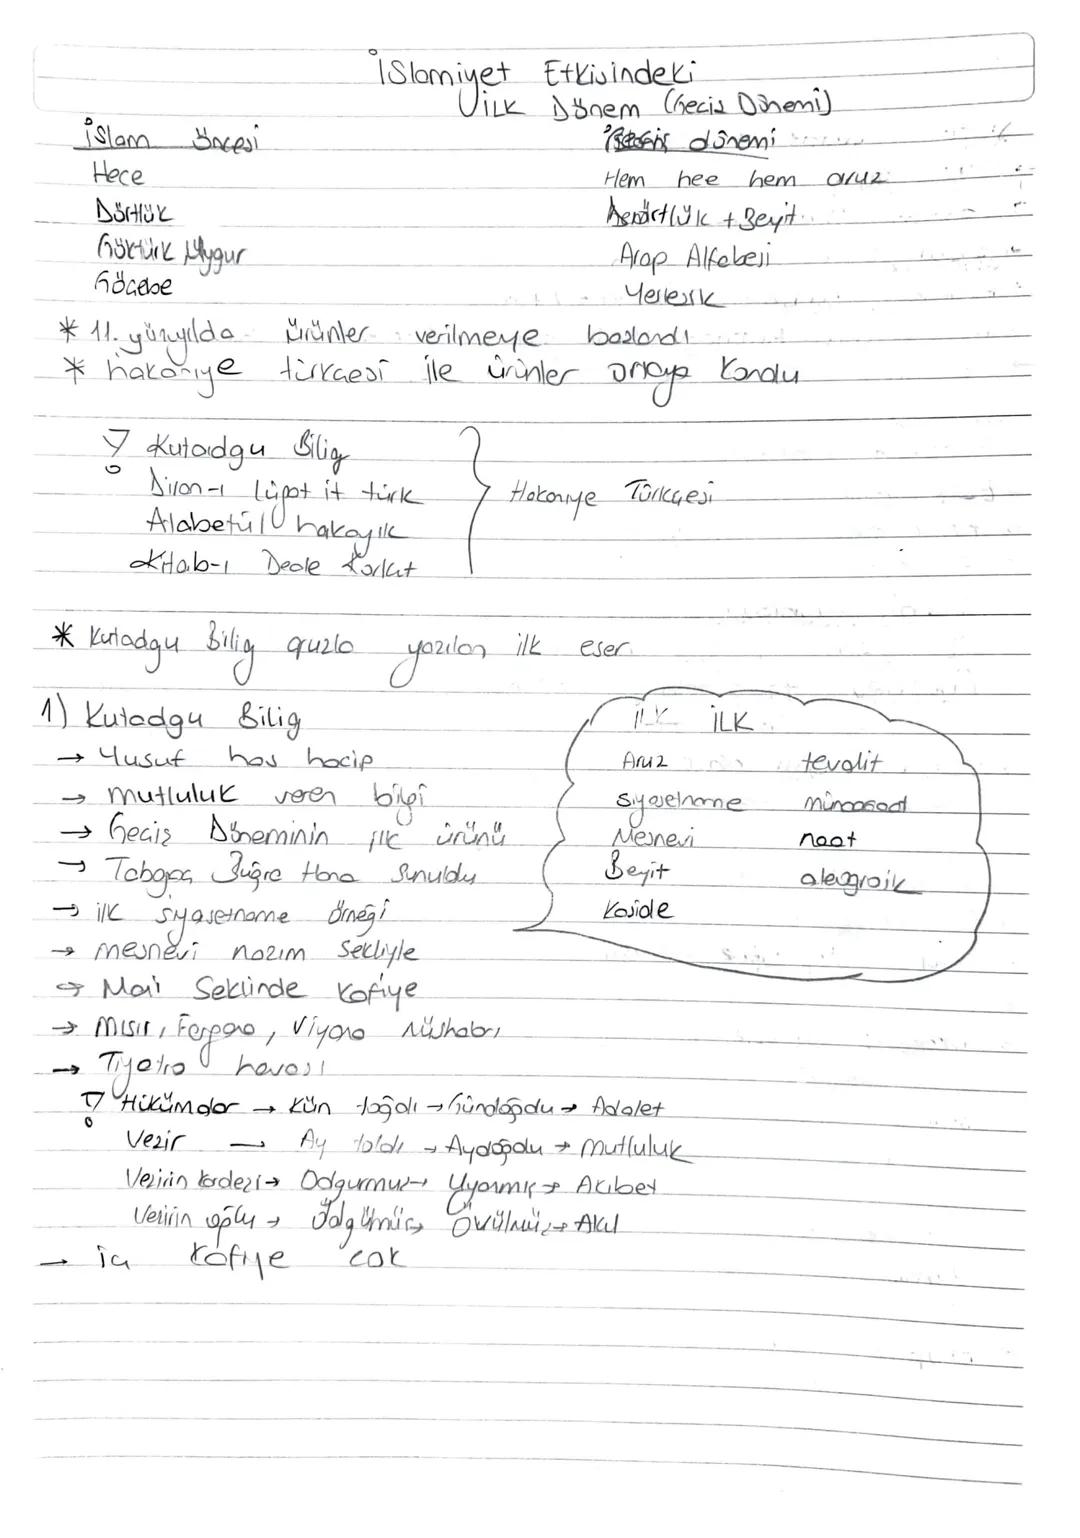 İslamiyet Etkisindeki
İLK Dönem (Geciş Dönemi)
İslam öncesi
Geciş dönemi
Hece
Hem hee hem aruz
Dörtlük
Dörtlük + Beyit
Göktürk Uygur
Arap Alfebesi
Göçebe
Yerlesik
* 11. yüzyılda ürünler verilmeye baslandı
* hakaniye türkcesi ile ürünler ortaya Kondu
Kutadgu Bilig
Divan-ı lügat it türk
Atabetül hakayık
Kitab-ı Dede Korkut
Hakaniye Türkçesi
* Kutadgu Bilig aruzla yazılan ilk eser
1) Kutadgu Bilig
İLK İLK
→ Yusuf has hacip
Aruz tevalit
→ mutluluk veren bilgi
Siyasetname münacaat
→ Geciş Döneminin ilk ürünü
Mesnevi naat
→ Tabgaç Buğra Hana Sunuldu
Beyit alegroik
→ ilk siyasetname örneği
Kaside
→ mesnevi nazım Sekliyle
→ Mani Seklinde kafiye
→ Mısır, Fergana, Viyana nüshaları
→ Tiyatro havası
! Hükümdar → Kün toğdı → Gündoğdu → Adalet
Vezir → Ay toldı → Aydoğdu → mutluluk
Vezirin kardeşi → Odgurmuş → Uyanmış → Akıbet
Vezirin oğlu → Ödgülmüş → Övülmüş → Akıl
→ iç kafiye cok